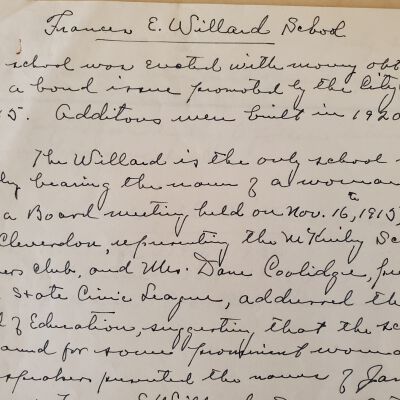 Frances E. Willard School
school was erected with money obt
a bond issue promoted by the City
15. Additons were built in 1920
The Willard is the only school
ly bearing the name of a woman
a Board meeting held on Nov. 16th, 1915,
Cleverdon, representing the McKinley Sc
ers club, and Mrs. Dane Coolidge, pre
State Civic League, addressed the
d of Education, suggesting that the sc
amed for some prominent woma
speakers presented the names of Jan